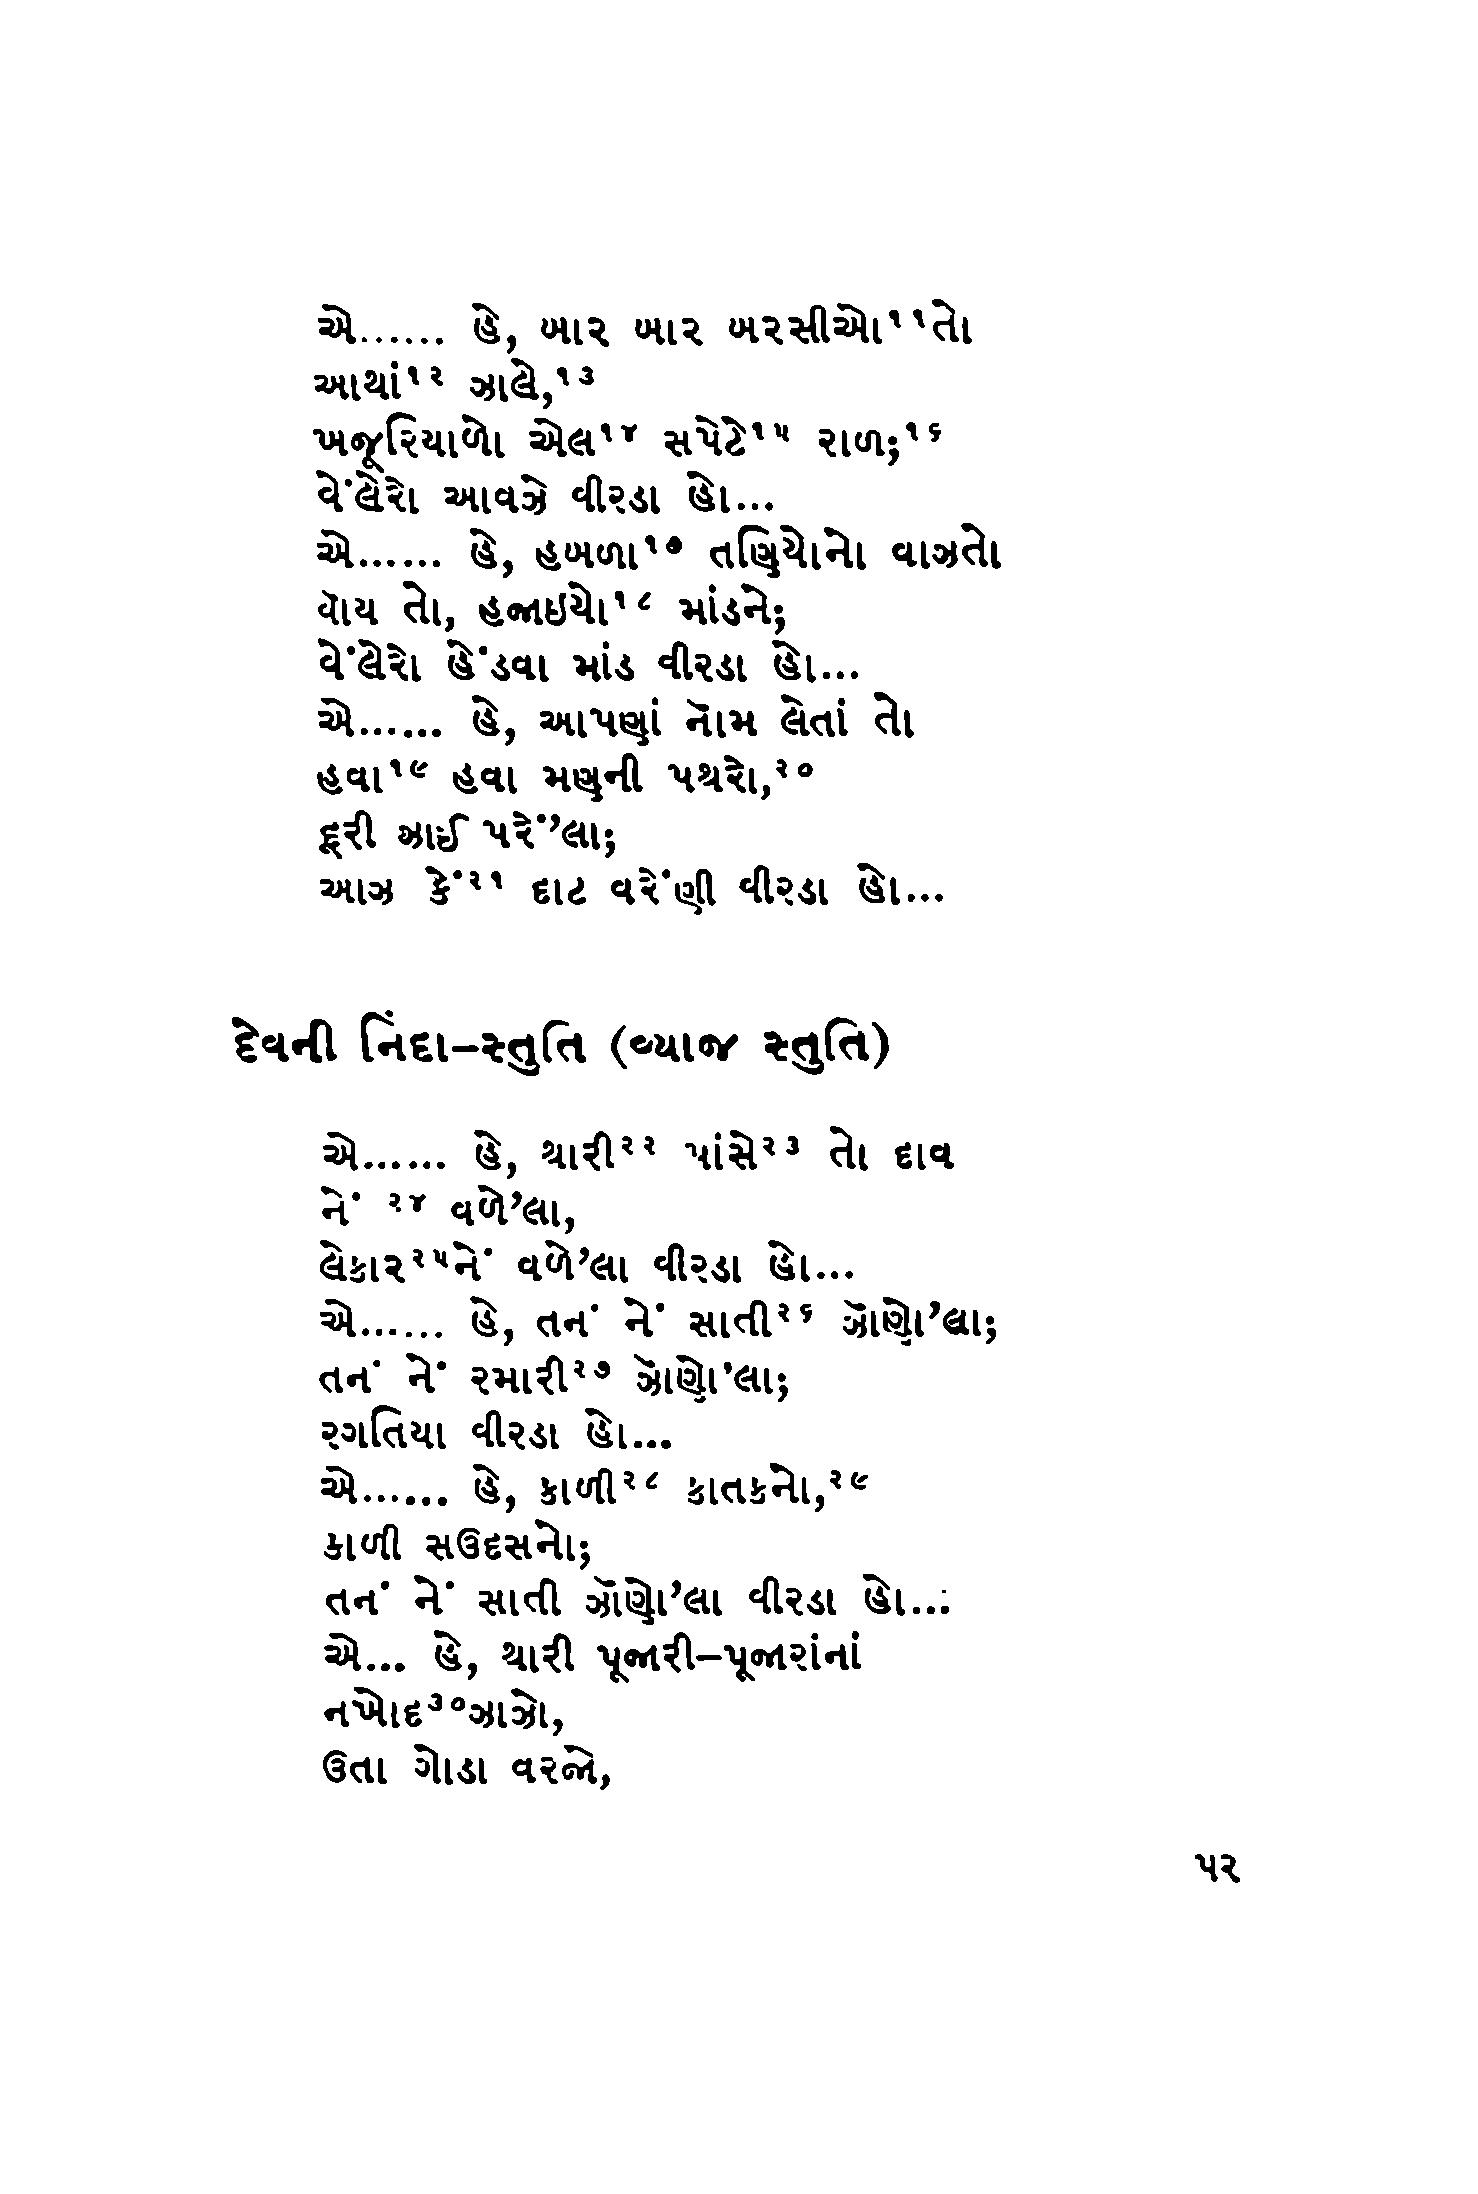 એ...... હે, બાર બાર બરસીઓ૧૧તો
આથાં૧૨ ઝાલે,૧૩
ખજૂરિયાળો એલ૧૪ સપેટે૧૫ રાળ;૧૬
વેં'લેરો આવઝે વીરડા હો...
એ...... હે, હબળા૧૭ તણિયોનો વાઝતો
વૉય તો, હજાઇયો૧૮ માંડને;
વેં'લેરો હેંડવા માંડ વીરડા હો...
એ...... હે, આપણાં નૉમ લેતાં તો
હવા૧૯ હવા મણની પથરો,૨૦
દૂરી ઝાઈ પરેં'લા;
આઝ કેં૨૧ દાટ વરેંણી વીરડા હો...
દેવની નિંદા–સ્તુતિ (વ્યાજ સ્તુતિ)
એ...... હે, થારી૨૨ પાંસે૨૩ તો દાવ
નેં ૨૪ વળે'લા,
લેકાર૨૫નેં વળે'લા વીરડા હો...
એ...... હે, તનં નેં સાતી૨૬ ઝૉણો'લા;
તનં નેં રમારી૨૭ ઝૉણો'લા;
રગતિયા વીરડા હો...
એ...... હે, કાળી૨૮ કાતકનો,૨૯
કાળી સઉદસનો;
તનં નેં સાતી ઝૉણો'લા વીરડા હો...
એ... હે, થારી પૂજારી–પૂજારાંનાં
નખોદ૩૦ઝાઝો,
ઉતા ગોડા વરજો,
૫૨